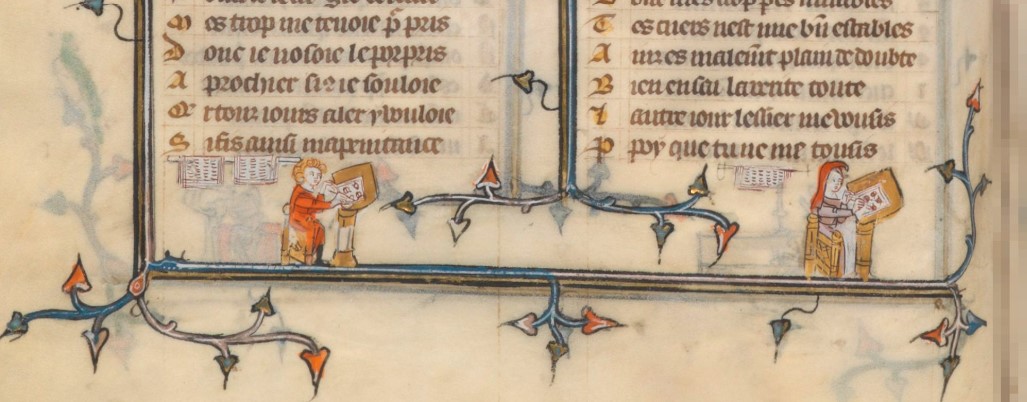 M es trop me tenoie p̃ pris
D onc ie nosoie le porpris
A prochier si 9 ie souloie
E t touz iours aler y vouloie
S i fis ainsi ma penitance
T es cuers nest mie bñ estables
A ins es maleũt plain de doubte
B ien en sai la verite toute
L autre iour lessier me vousis
P poy que tu ne me tousis